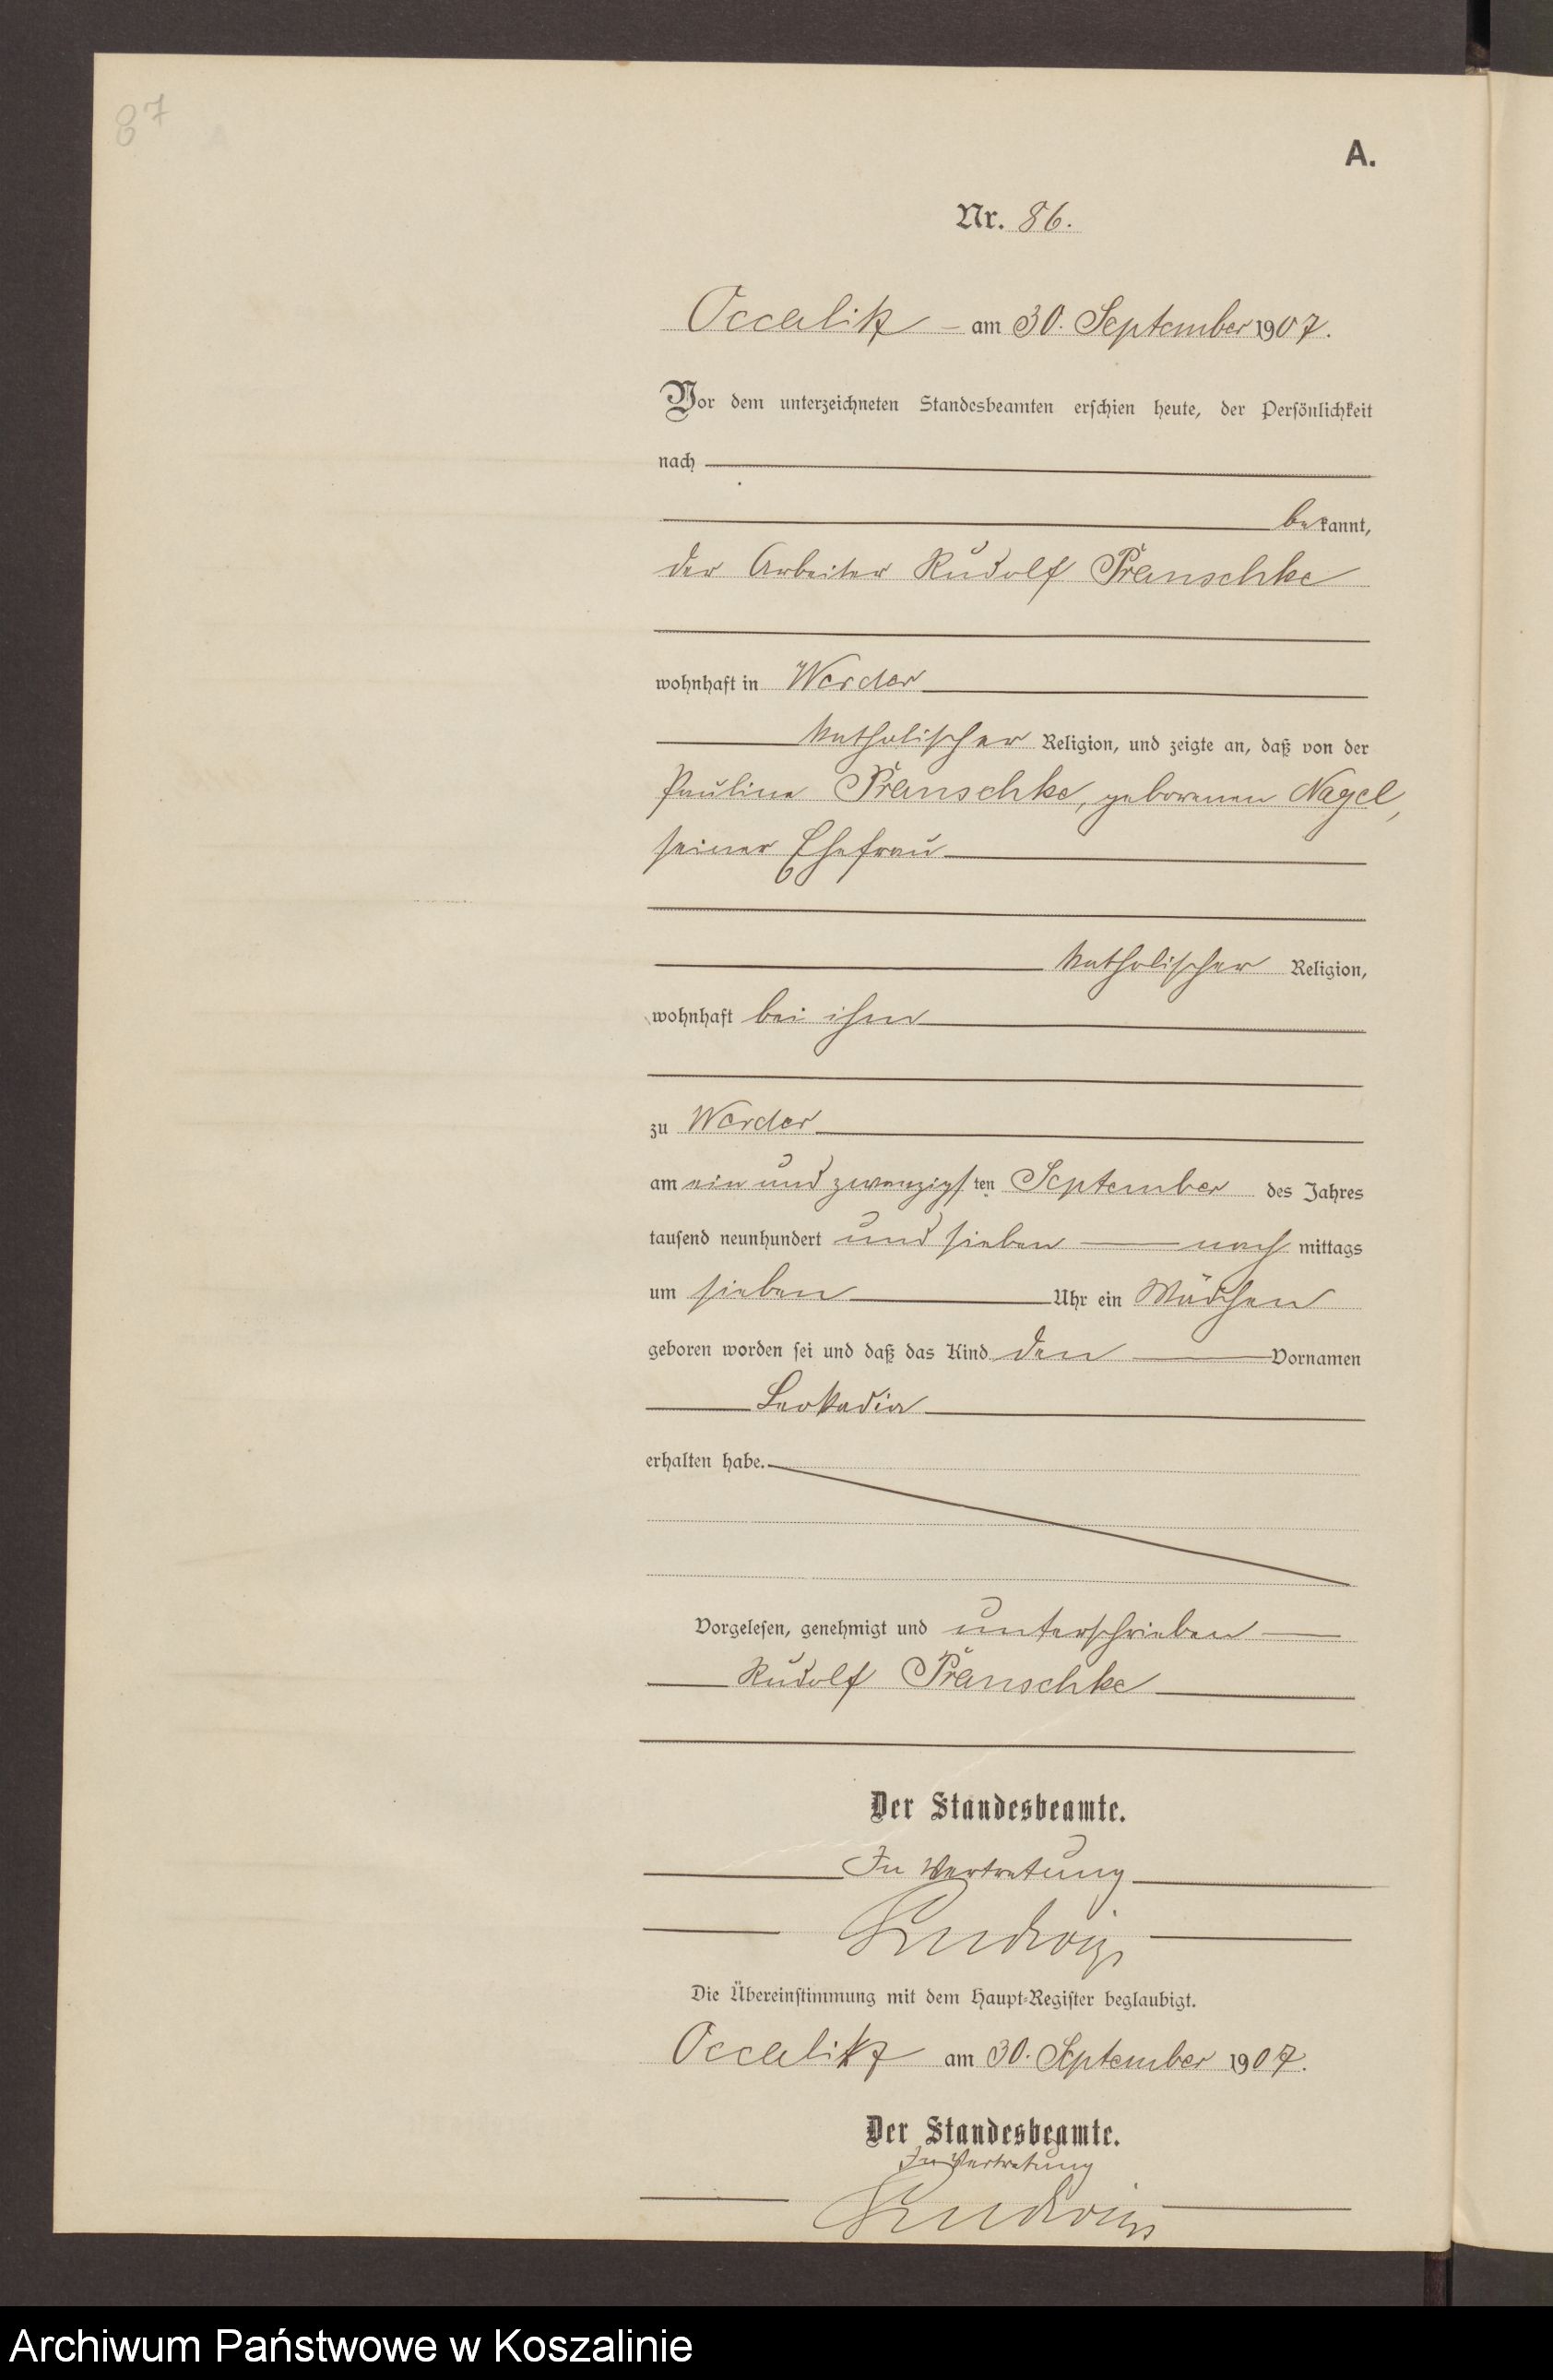 87
A.
Nr. 86.
Occalitz am 30. September 1907.
Vor dem unterzeichneten Standesbeamten erschien heute, der Persönlichkeit
nach
bekannt,
der Arbeiter Rudolf Pranschke
wohnhaft in Werder
katholischer Religion, und zeigte an, daß von der
Pauline Pranschke, geborenen Nagel,
seiner Ehefrau
katholischer Religion,
wohnhaft bei ihm
zu Werder
am ein und zwanzigsten September des Jahres
tausend neunhundert und sieben nach mittags
um sieben Uhr ein Mädchen
geboren worden sei und daß das Kind den Vornamen
Leokadia
erhalten habe.
Vorgelesen, genehmigt und unterschrieben
Rudolf Pranschke
Der Standesbeamte.
In Vertretung
Ludwig
Die Übereinstimmung mit dem Haupt-Register beglaubigt.
Occalitz am 30. September 1907.
Der Standesbeamte.
In Vertretung
Ludwig
Archiwum Państwowe w Koszalinie